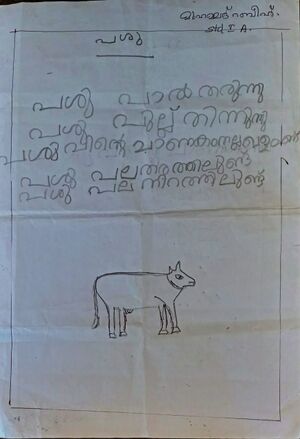 മുഹമ്മദ് റബീഹ്.
Std. I A.
പശു
പശു പാൽ തരുന്നു
പശു പുല്ല് തിന്നുന്നു
പശുവിന്റെ ചാണകം നല്ല വളമാണ്
പശു പല തരത്തിലുണ്ട്
പശു പല നിറത്തിലുണ്ട്